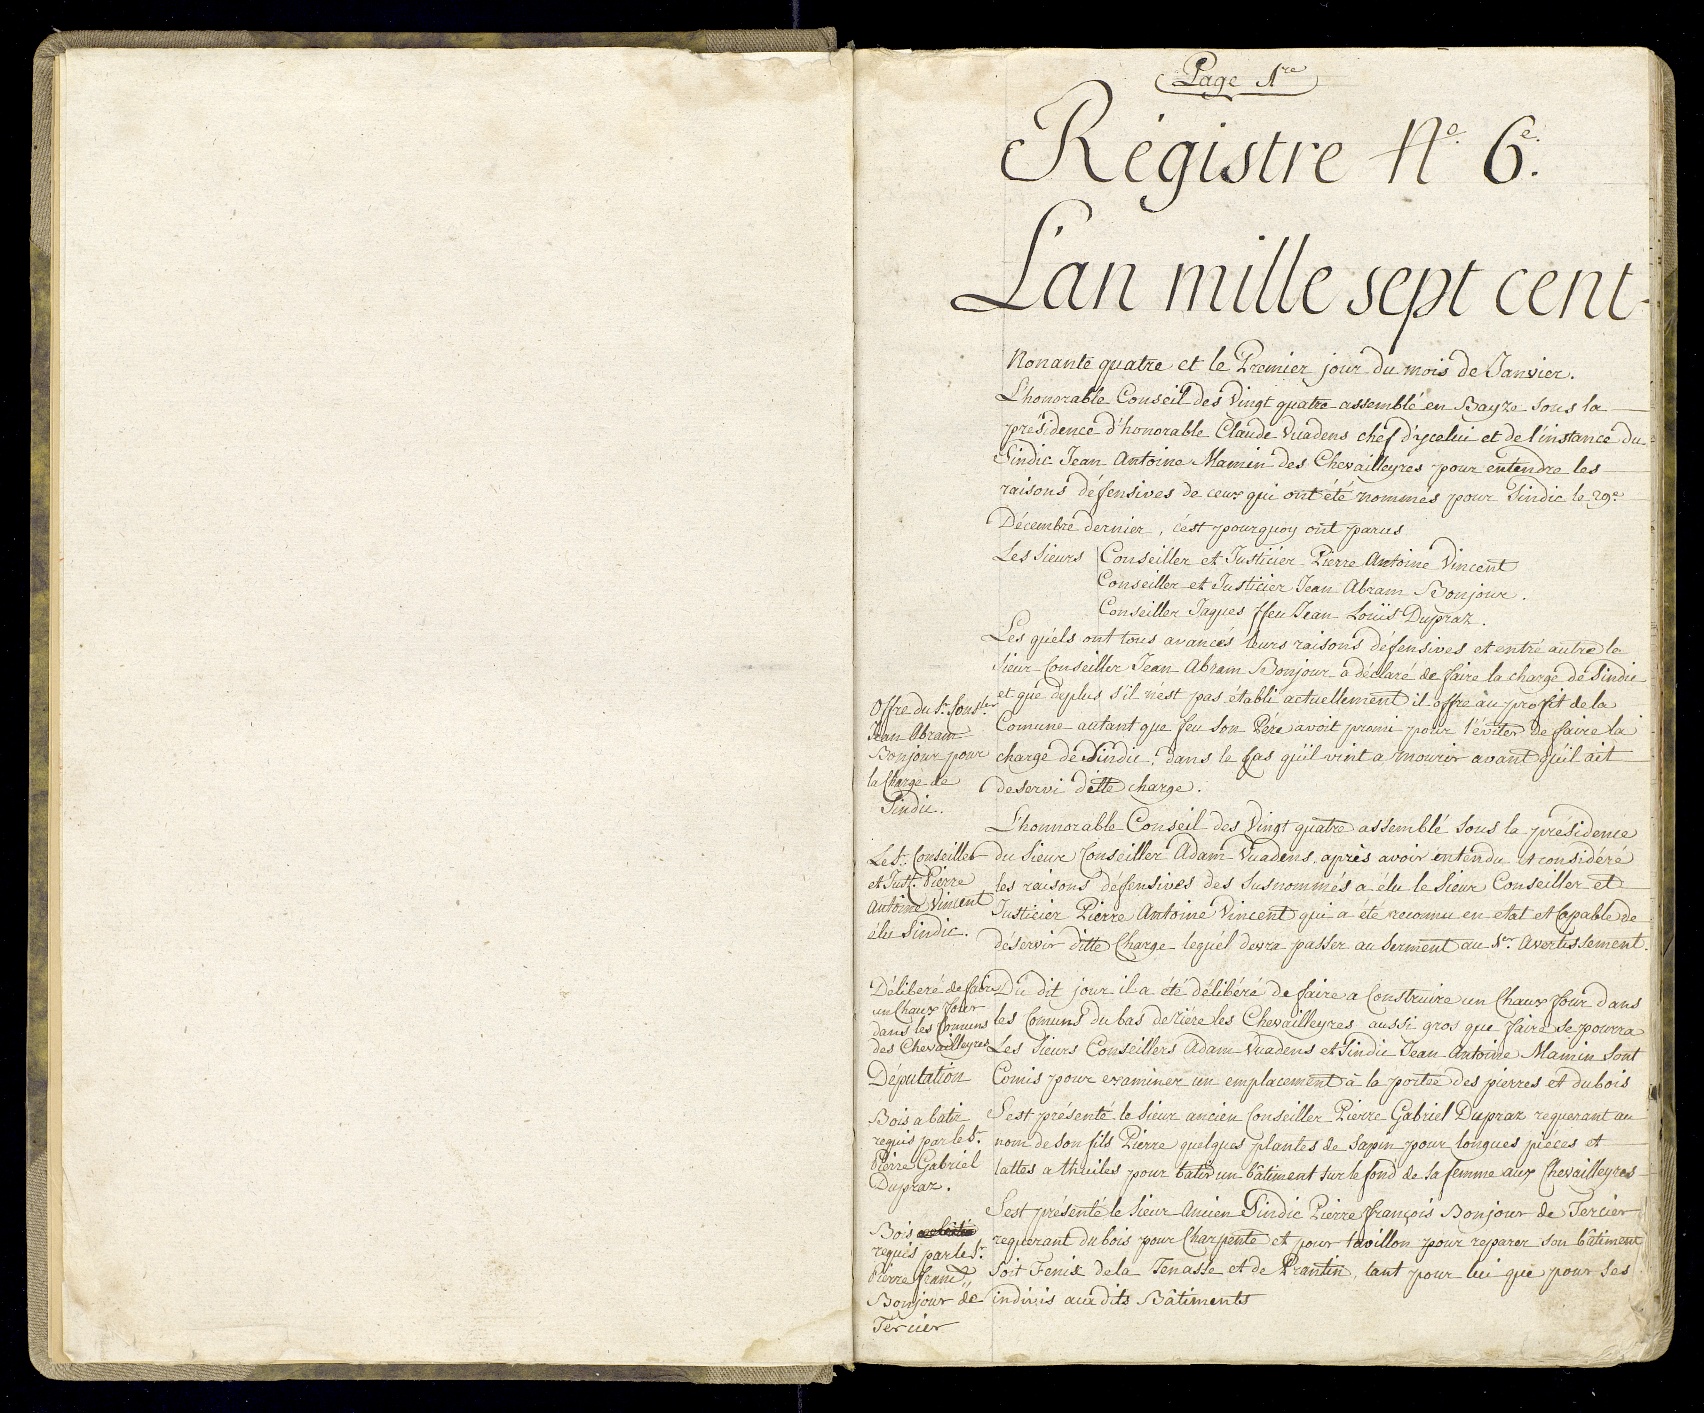 Page 1re
Régistre No. 6e.
L'an mille sept cent
Nonante quatre et le Premier jour du mois de Janvier.
L'honorable Conseil des Vingt quatre assemblé en Bayze sous la
présidence d'honorable Claude Vuadens chef d'ycelui et de l'instance du
Sindic Jean Antoine Mamin des Chevailleyres pour entendre les
raisons défensives de ceux qui ont été nommés pour Sindic le 29e
Décembre dernier, c'est pourquoy ont parus
Les Sieurs Conseiller et Justicier Pierre Antoine Vincent
Conseiller et Justicier Jean Abram Bonjour.
Conseiller Jaques ffeu Jean Louïs Dupraz.
Les quéls ont tous avancés leurs raisons défensives et entré autre le
Sieur Conseiller Jean Abram Bonjour a déclaré de faire la charge de Sindic
et que deplus s'il n'est pas établi actuellement il offre au profit de la
Comune autant que feu son Pére avoit promi pour l'éviter de faire la
charge de Sindic, dans le Cas qu'il vint a mourir avant qu'il ait
deservi ditte charge.
Offre du Sr. Consler
Jean Abram
Bonjour pour
la Charge de
Sindic.
L'honnorable Conseil des Vingt quatre assemblé sous la présidence
du Sieur Conseiller Adam Vuadens, après avoir entendu et considéré
les raisons défensives des susnommés a élu le Sieur Conseiller et
Justicier Pierre Antoine Vincent qui a été reconnu en etat et Capable de
déservir ditte Charge lequél devra passer au Serment au 1er. Avertissement.
Le Sr. Conseiller
et Just. Pierre
Antoine Vincent
élu Sindic.
Du dit jour il a été délibéré de faire a Construire un Chaux four dans
les Comuns du bas deriere les Chevailleyres aussi gros que faire se pourra
Les Sieurs Conseillers Adam Vuadens et Sindic Jean Antoine Mamin sont
Comis pour examiner un emplacement à la portée des pierres et dubois
Déliberé de faire
un Chaux four
dans les Comuns
des Chevailleyres
Députation
S'est présenté le Sieur ancien Conseiller Pierre Gabriel Dupraz requerant au
nom de son fils Pierre quelques plantes de Sapin pour longues pièces et
lattes a thuiles pour batir un bâtiment sur le fond de sa femme aux Chevailleyres
Bois a batir
requis par le Sr.
Pierre Gabriel
Dupraz.
S'est présenté le Sieur Ancien Sindic Pierre françois Bonjour de Tercier
requerant du bois pour Charpente et pour tavillon pour reparer son bâtiment
soit Fenix de la Tenasse et de Prantin, tant pour lui que pour ses
indivis aux dits Bâtiments
Bois
requis par le Sr.
Pierre franç
Bonjour de
Tercier